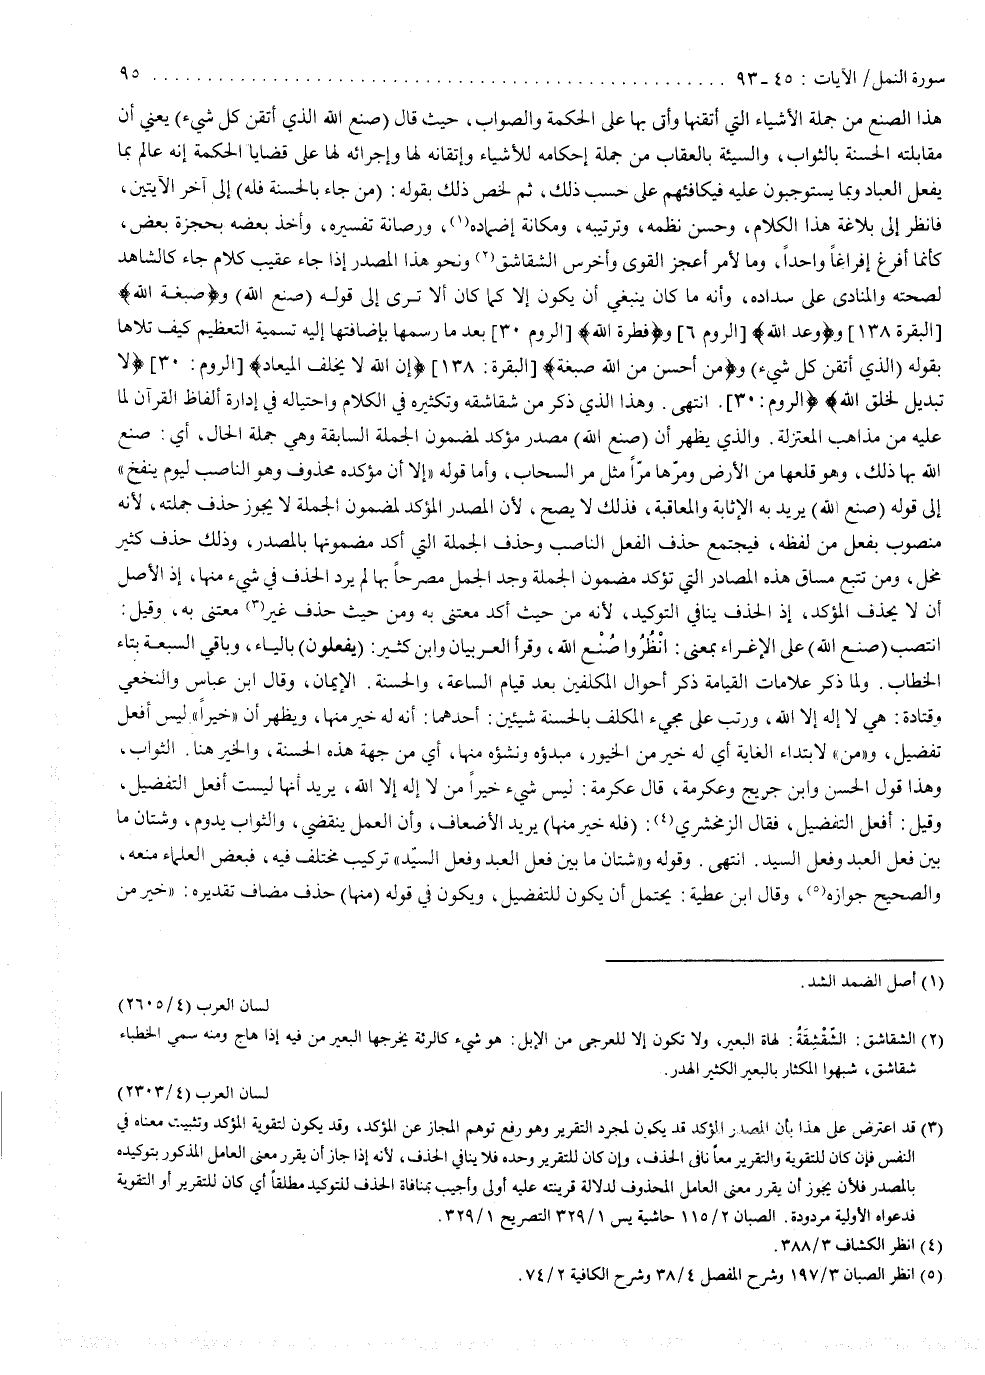 سورة النمل/ الآيات : ٤٥ ـ ٩٣ ............................................................ ٩٥
هذا الصنع من جملة الأشياء التي أتقنها وأتى بها على الحكمة والصواب، حيث قال (صنع الله الذي أتقن كل شيء) يعني أن
مقابلته الحسنة بالثواب، والسيئة بالعقاب من جملة إحكامه للأشياء وإتقانه لها وإجرائه لها على قضايا الحكمة إنه عالم بما
يفعل العباد وبما يستوجبون عليه فيكافئهم على حسب ذلك، ثم لخص ذلك بقوله : (من جاء بالحسنة فله) إلى آخر الآيتين،
فانظر إلى بلاغة هذا الكلام، وحسن نظمه، وترتيبه، ومكانة إضماده(١)، ورصانة تفسيره، وأخذ بعضه بحجزة بعض،
كأنما أفرغ إفراغاً واحداً، وما لأمر أعجز القوى وأخرس الشقاشق(٢) ونحو هذا المصدر إذا جاء عقيب كلام جاء كالشاهد
لصحته والمنادى على سداده، وأنه ما كان ينبغي أن يكون إلا كما كان ألا ترى إلى قوله (صنع الله) و﴿صبغة الله﴾
[البقرة ١٣٨] و﴿وعد الله﴾ [الروم ٦] و﴿فطرة الله﴾ [الروم ٣٠] بعد ما رسمها بإضافتها إليه تسمية التعظيم كيف تلاها
بقوله (الذي أتقن كل شيء) و﴿من أحسن من الله صبغة﴾ [البقرة: ١٣٨] ﴿إن الله لا يخلف الميعاد﴾ [الروم: ٣٠] ﴿لا
تبديل لخلق الله﴾ ﴿الروم: ٣٠]. انتهى. وهذا الذي ذكر من شقاشقه وتكثيره في الكلام واحتياله في إدارة ألفاظ القرآن لما
عليه من مذاهب المعتزلة. والذي يظهر أن (صنع الله) مصدر مؤكد لمضمون الجملة السابقة وهي جملة الحال، أي : صنع
الله بها ذلك، وهو قلعها من الأرض ومرّها مرّاً مثل مر السحاب، وأما قوله «إلا أن مؤكده محذوف وهو الناصب ليوم ينفخ»
إلى قوله (صنع الله) يريد به الإثابة والمعاقبة، فذلك لا يصح، لأن المصدر المؤكد لمضمون الجملة لا يجوز حذف جملته، لأنه
منصوب بفعل من لفظه، فيجتمع حذف الفعل الناصب وحذف الجملة التي أكد مضمونها بالمصدر، وذلك حذف كثير
مخل، ومن تتبع مساق هذه المصادر التي تؤكد مضمون الجملة وجد الجمل مصرحاً بها لم يرد الحذف في شيء منها، إذ الأصل
أن لا يحذف المؤكد، إذ الحذف ينافي التوكيد، لأنه من حيث أكد معتنى به ومن حيث حذف غير(٣) معتنى به، وقيل :
انتصب (صنع الله) على الإغراء بمعنى : انْظُرُوا صُنْع الله، وقرأ العربيان وابن كثير: (يفعلون) بالياء، وباقي السبعة بتاء
الخطاب. ولما ذكر علامات القيامة ذكر أحوال المكلفين بعد قيام الساعة، والحسنة. الإيمان، وقال ابن عباس والنخعي
وقتادة: هي لا إله إلا الله، ورتب على مجيء المكلف بالحسنة شيئين: أحدهما: أنه له خير منها، ويظهر أن «خيراً» ليس أفعل
تفضيل، و«من» لابتداء الغاية أي له خير من الخيور، مبدؤه ونشؤه منها، أي من جهة هذه الحسنة، والخير هنا. الثواب،
وهذا قول الحسن وابن جريج وعكرمة، قال عكرمة: ليس شيء خيراً من لا إله إلا الله، يريد أنها ليست أفعل التفضيل،
وقيل: أفعل التفضيل، فقال الزمخشري(٤): (فله خير منها) يريد الأضعاف، وأن العمل ينقضي، والثواب يدوم، وشتان ما
بين فعل العبد وفعل السيد. انتهى. وقوله و«شتان ما بين فعل العبد وفعل السيّد» تركيب مختلف فيه، فبعض العلماء منعه،
والصحيح جوازه(٥)، وقال ابن عطية: يحتمل أن يكون للتفضيل، ويكون في قوله (منها) حذف مضاف تقديره: «خير من
(١) أصل الضمد الشد.
لسان العرب (٤/٢٦٠٥)
(٢) الشقاشق : الشِّقْشِقَةُ: لهاة البعير، ولا تكون إلا للعرجى من الإبل: هو شيء كالرئة يخرجها البعير من فيه إذا هاج ومنه سمي الخطباء
شقاشق، شبهوا المكثار بالبعير الكثير الهدر.
لسان العرب (٤/٢٣٠٣)
(٣) قد اعترض على هذا بأن المصدر المؤكد قد يكون لمجرد التقرير وهو رفع توهم المجاز عن المؤكد، وقد يكون لتقوية المؤكد وتثبيت معناه في
النفس فإن كان للتقوية والتقرير معاً نافى الحذف، وإن كان للتقرير وحده فلا ينافي الحذف، لأنه إذا جاز أن يقرر معنى العامل المذكور بتوكيده
بالمصدر فلأن يجوز أن يقرر معنى العامل المحذوف لدلالة قرينته عليه أولى وأجيب بمنافاة الحذف للتوكيد مطلقاً أي كان للتقرير أو التقوية
فدعواه الأولية مردودة. الصبان ٢/ ١١٥ حاشية يس ١/ ٣٢٩ التصريح ١/ ٣٢٩.
(٤) انظر الكشاف ٣/ ٣٨٨.
(٥) انظر الصبان ٣/ ١٩٧ وشرح المفصل ٤/ ٣٨ وشرح الكافية ٢/ ٧٤.